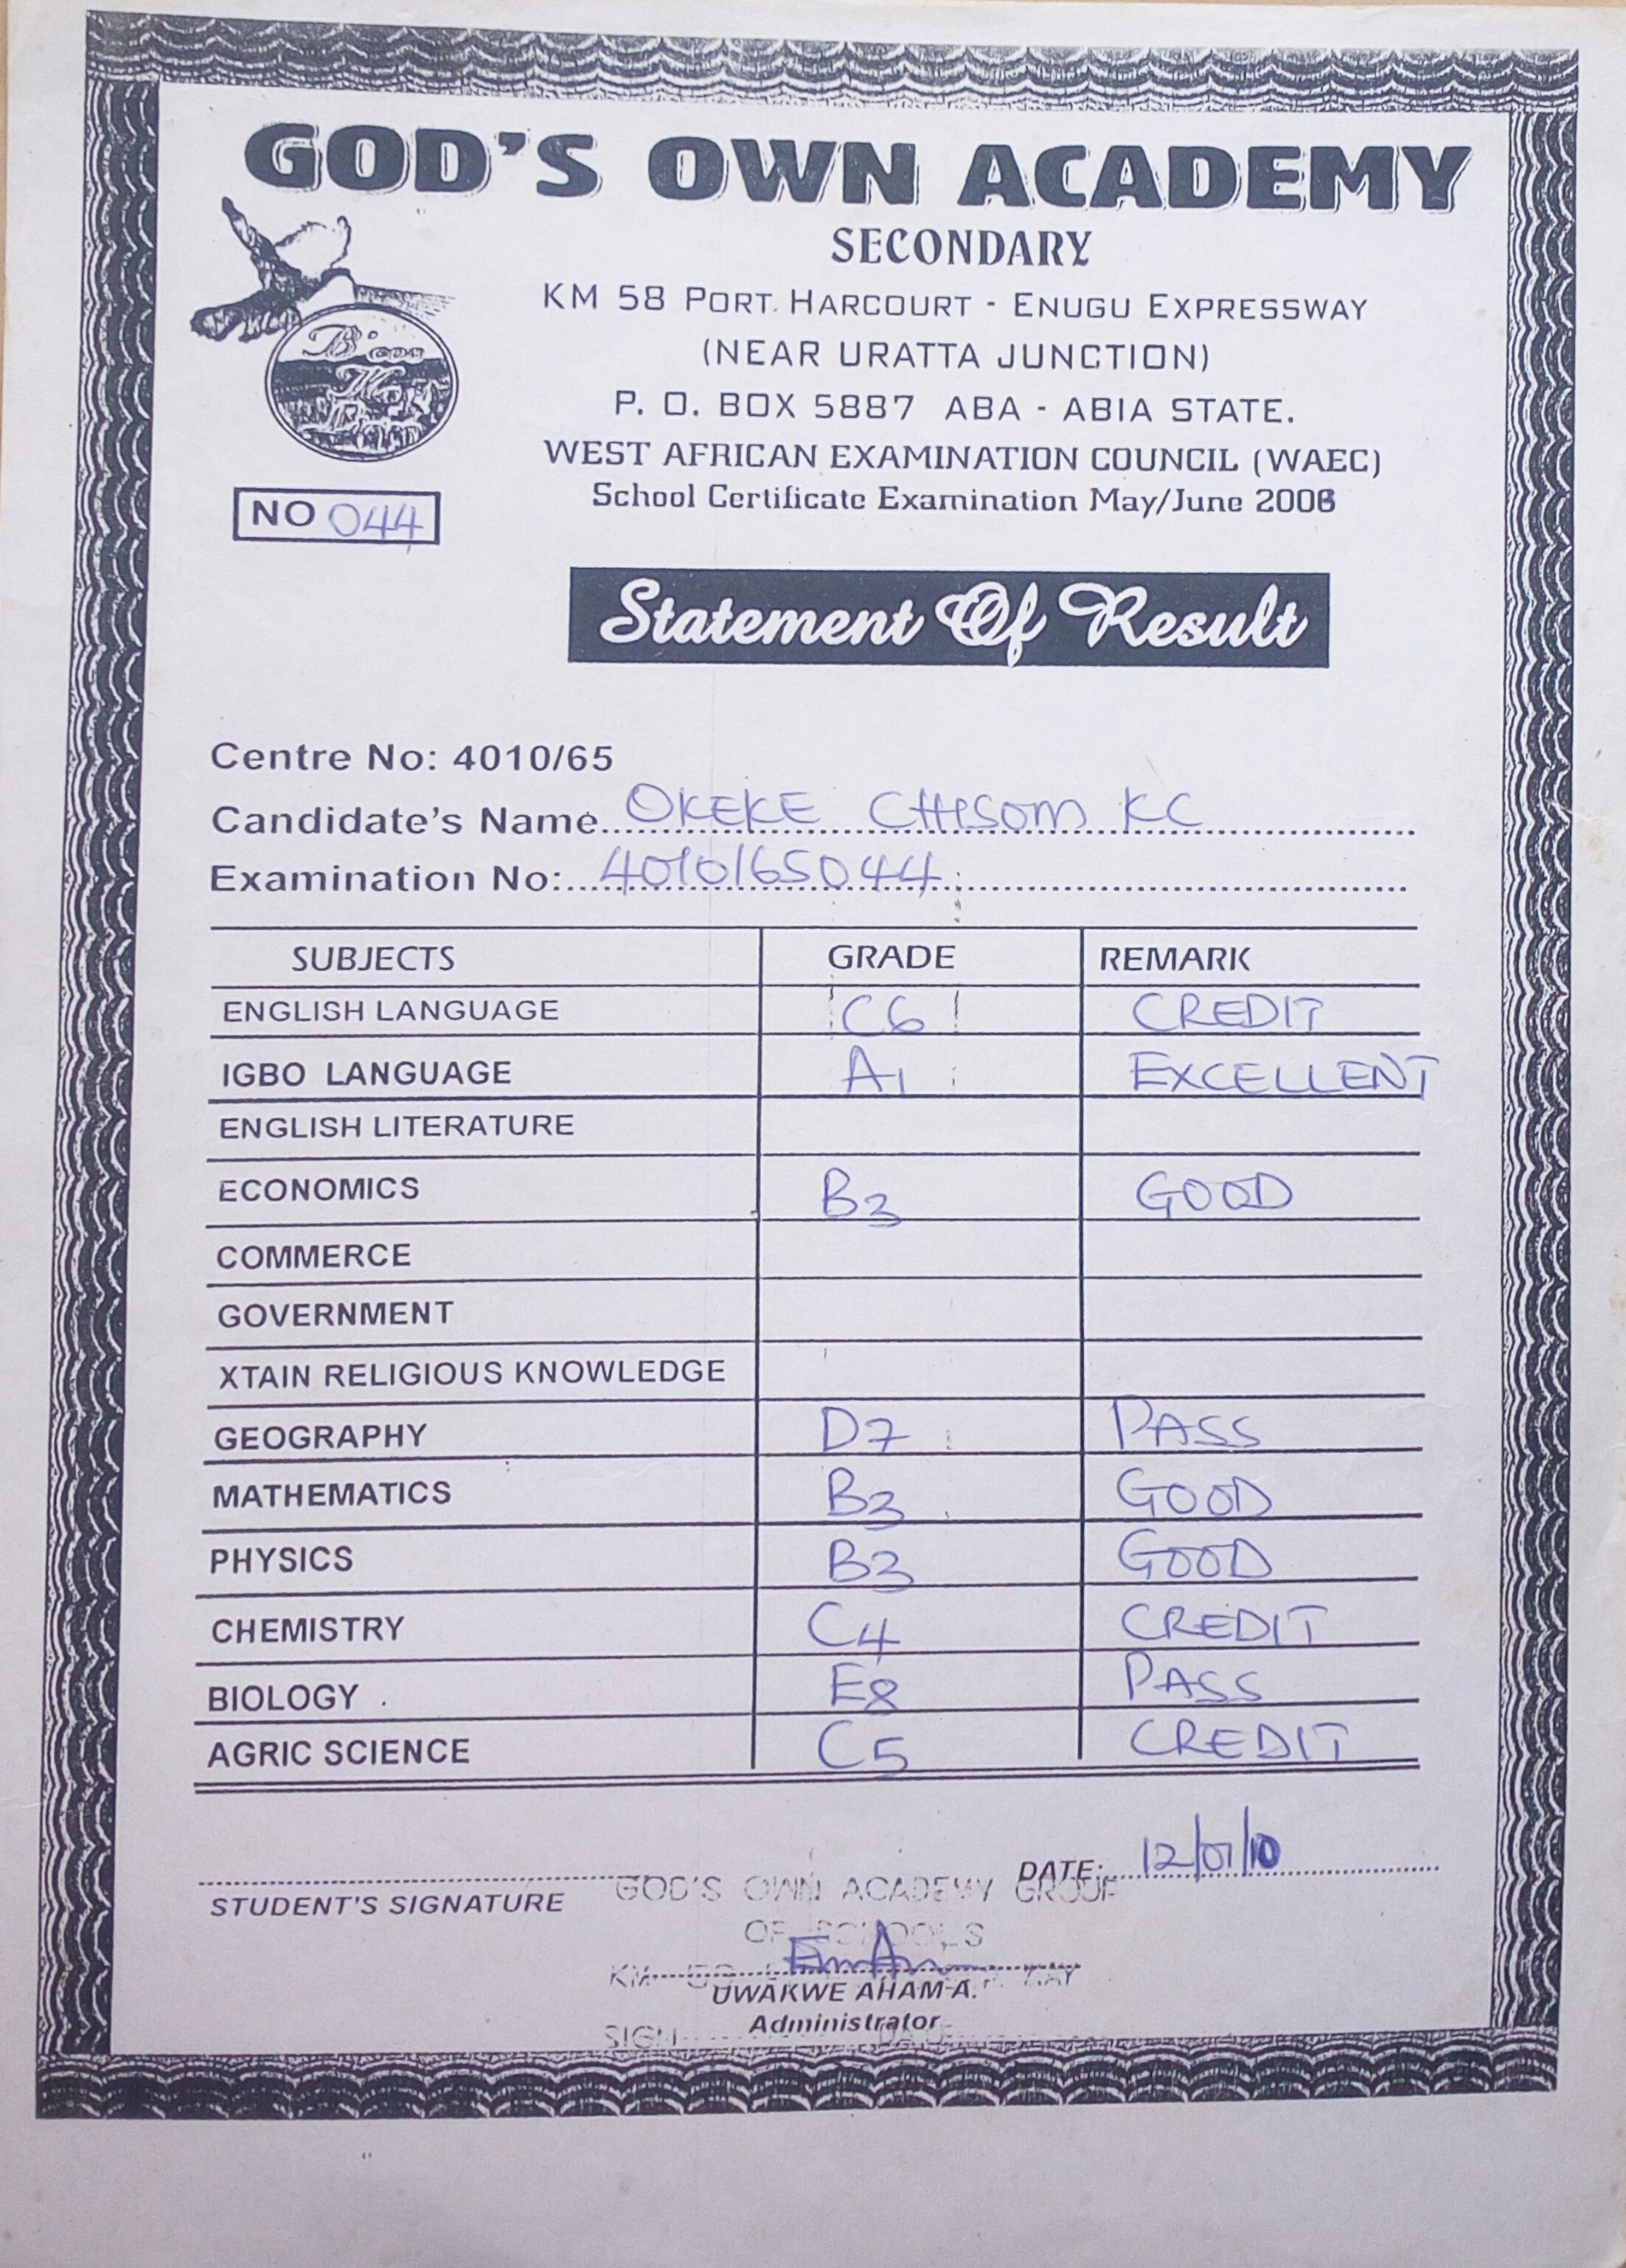 GOD'S OWN ACADEMY
SECONDARY
KM 58 PORT HARCOURT - ENUGU EXPRESSWAY
(NEAR URATTA JUNCTION)
P. O. BOX 5887 ABA - ABIA STATE.
WEST AFRICAN EXAMINATION COUNCIL (WAEC)
School Certificate Examination May/June
NO 044
Statement Of Result
Centre No: 4010/65
Candidate's Name OKEKE CHISOM KC
Examination No: 4010165044
SUBJECTS GRADE REMARK
ENGLISH LANGUAGE C6 CREDIT
IGBO LANGUAGE A1 EXCELLENT
ENGLISH LITERATURE
ECONOMICS B3 GOOD
COMMERCE
GOVERNMENT
XTAIN RELIGIOUS KNOWLEDGE
GEOGRAPHY D7 PASS
MATHEMATICS B3 GOOD
PHYSICS B3 GOOD
CHEMISTRY C4 CREDIT
BIOLOGY E8 PASS
AGRIC SCIENCE C5 CREDIT
DATE: 12/01/10
STUDENT'S SIGNATURE
GOD'S OWN ACADEMY GROUP
OF SCHOOLS
UWAKWE AHAM-A.
Administrator
SIGN